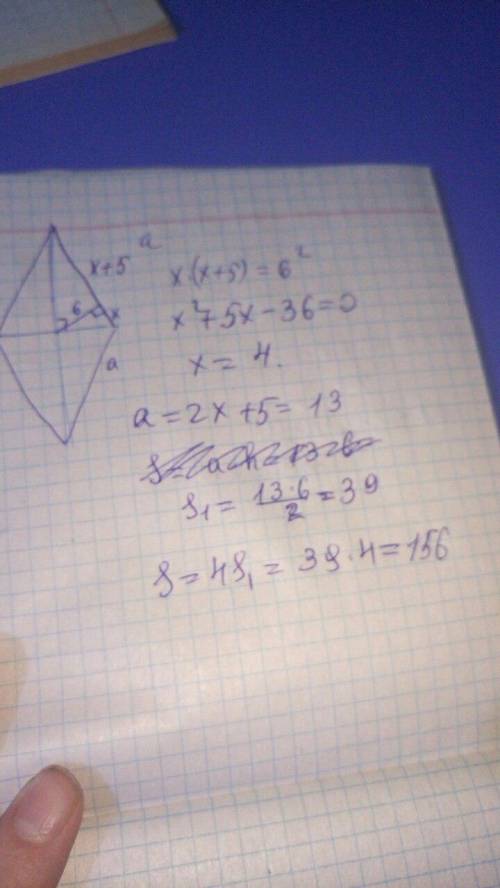 a
x+5
6
x
a
x(x+5) = 6²
x²+5x-36=0
x = 4.
a = 2x+5 = 13
S₁ = 13·6/2 = 39
S = 4S₁ = 39·4 = 156